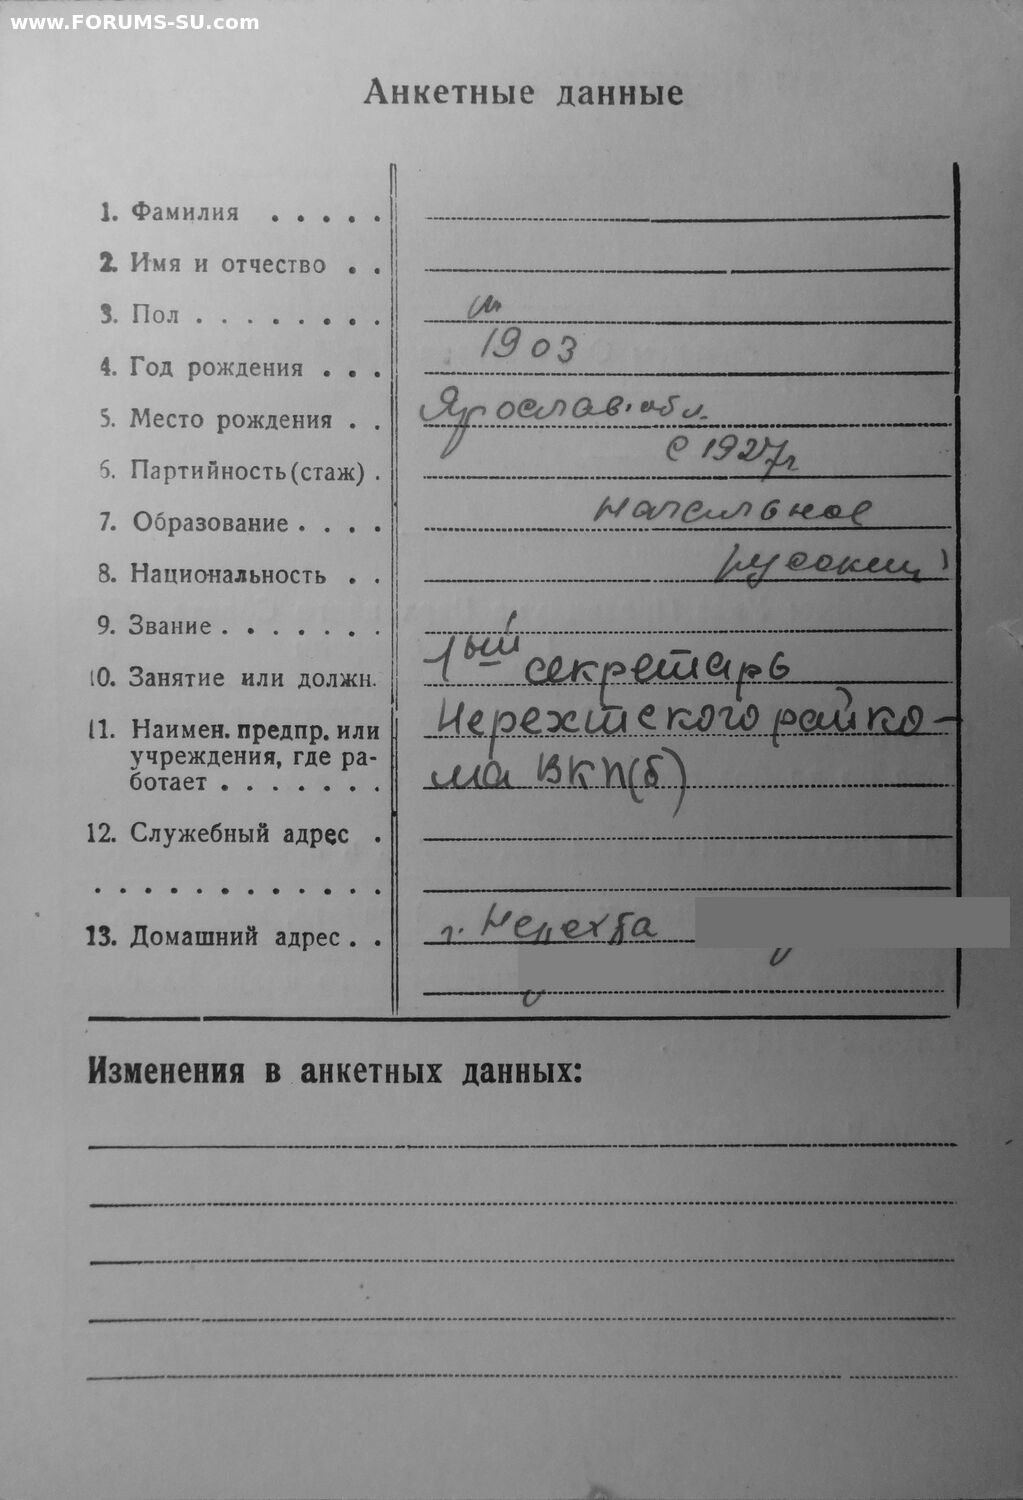 www.FORUMS-SU.com
Анкетные данные
1. Фамилия . . . . .
2. Имя и отчество . .
3. Пол . . . . . . . . м
4. Год рождения . . . 1903
5. Место рождения . . Ярослав. обл.
6. Партийность (стаж) . с 1927г
7. Образование . . . . начальное
8. Национальность . . русский
9. Звание . . . . . . .
10. Занятие или должн. 1ый секретарь
11. Наимен. предпр. или Нерехтского райко-
учреждения, где ра-
ботает . . . . . . . ма ВКП(б)
12. Служебный адрес .
. . . . . . . . . . . .
13. Домашний адрес . . г. Нерехта
Изменения в анкетных данных: